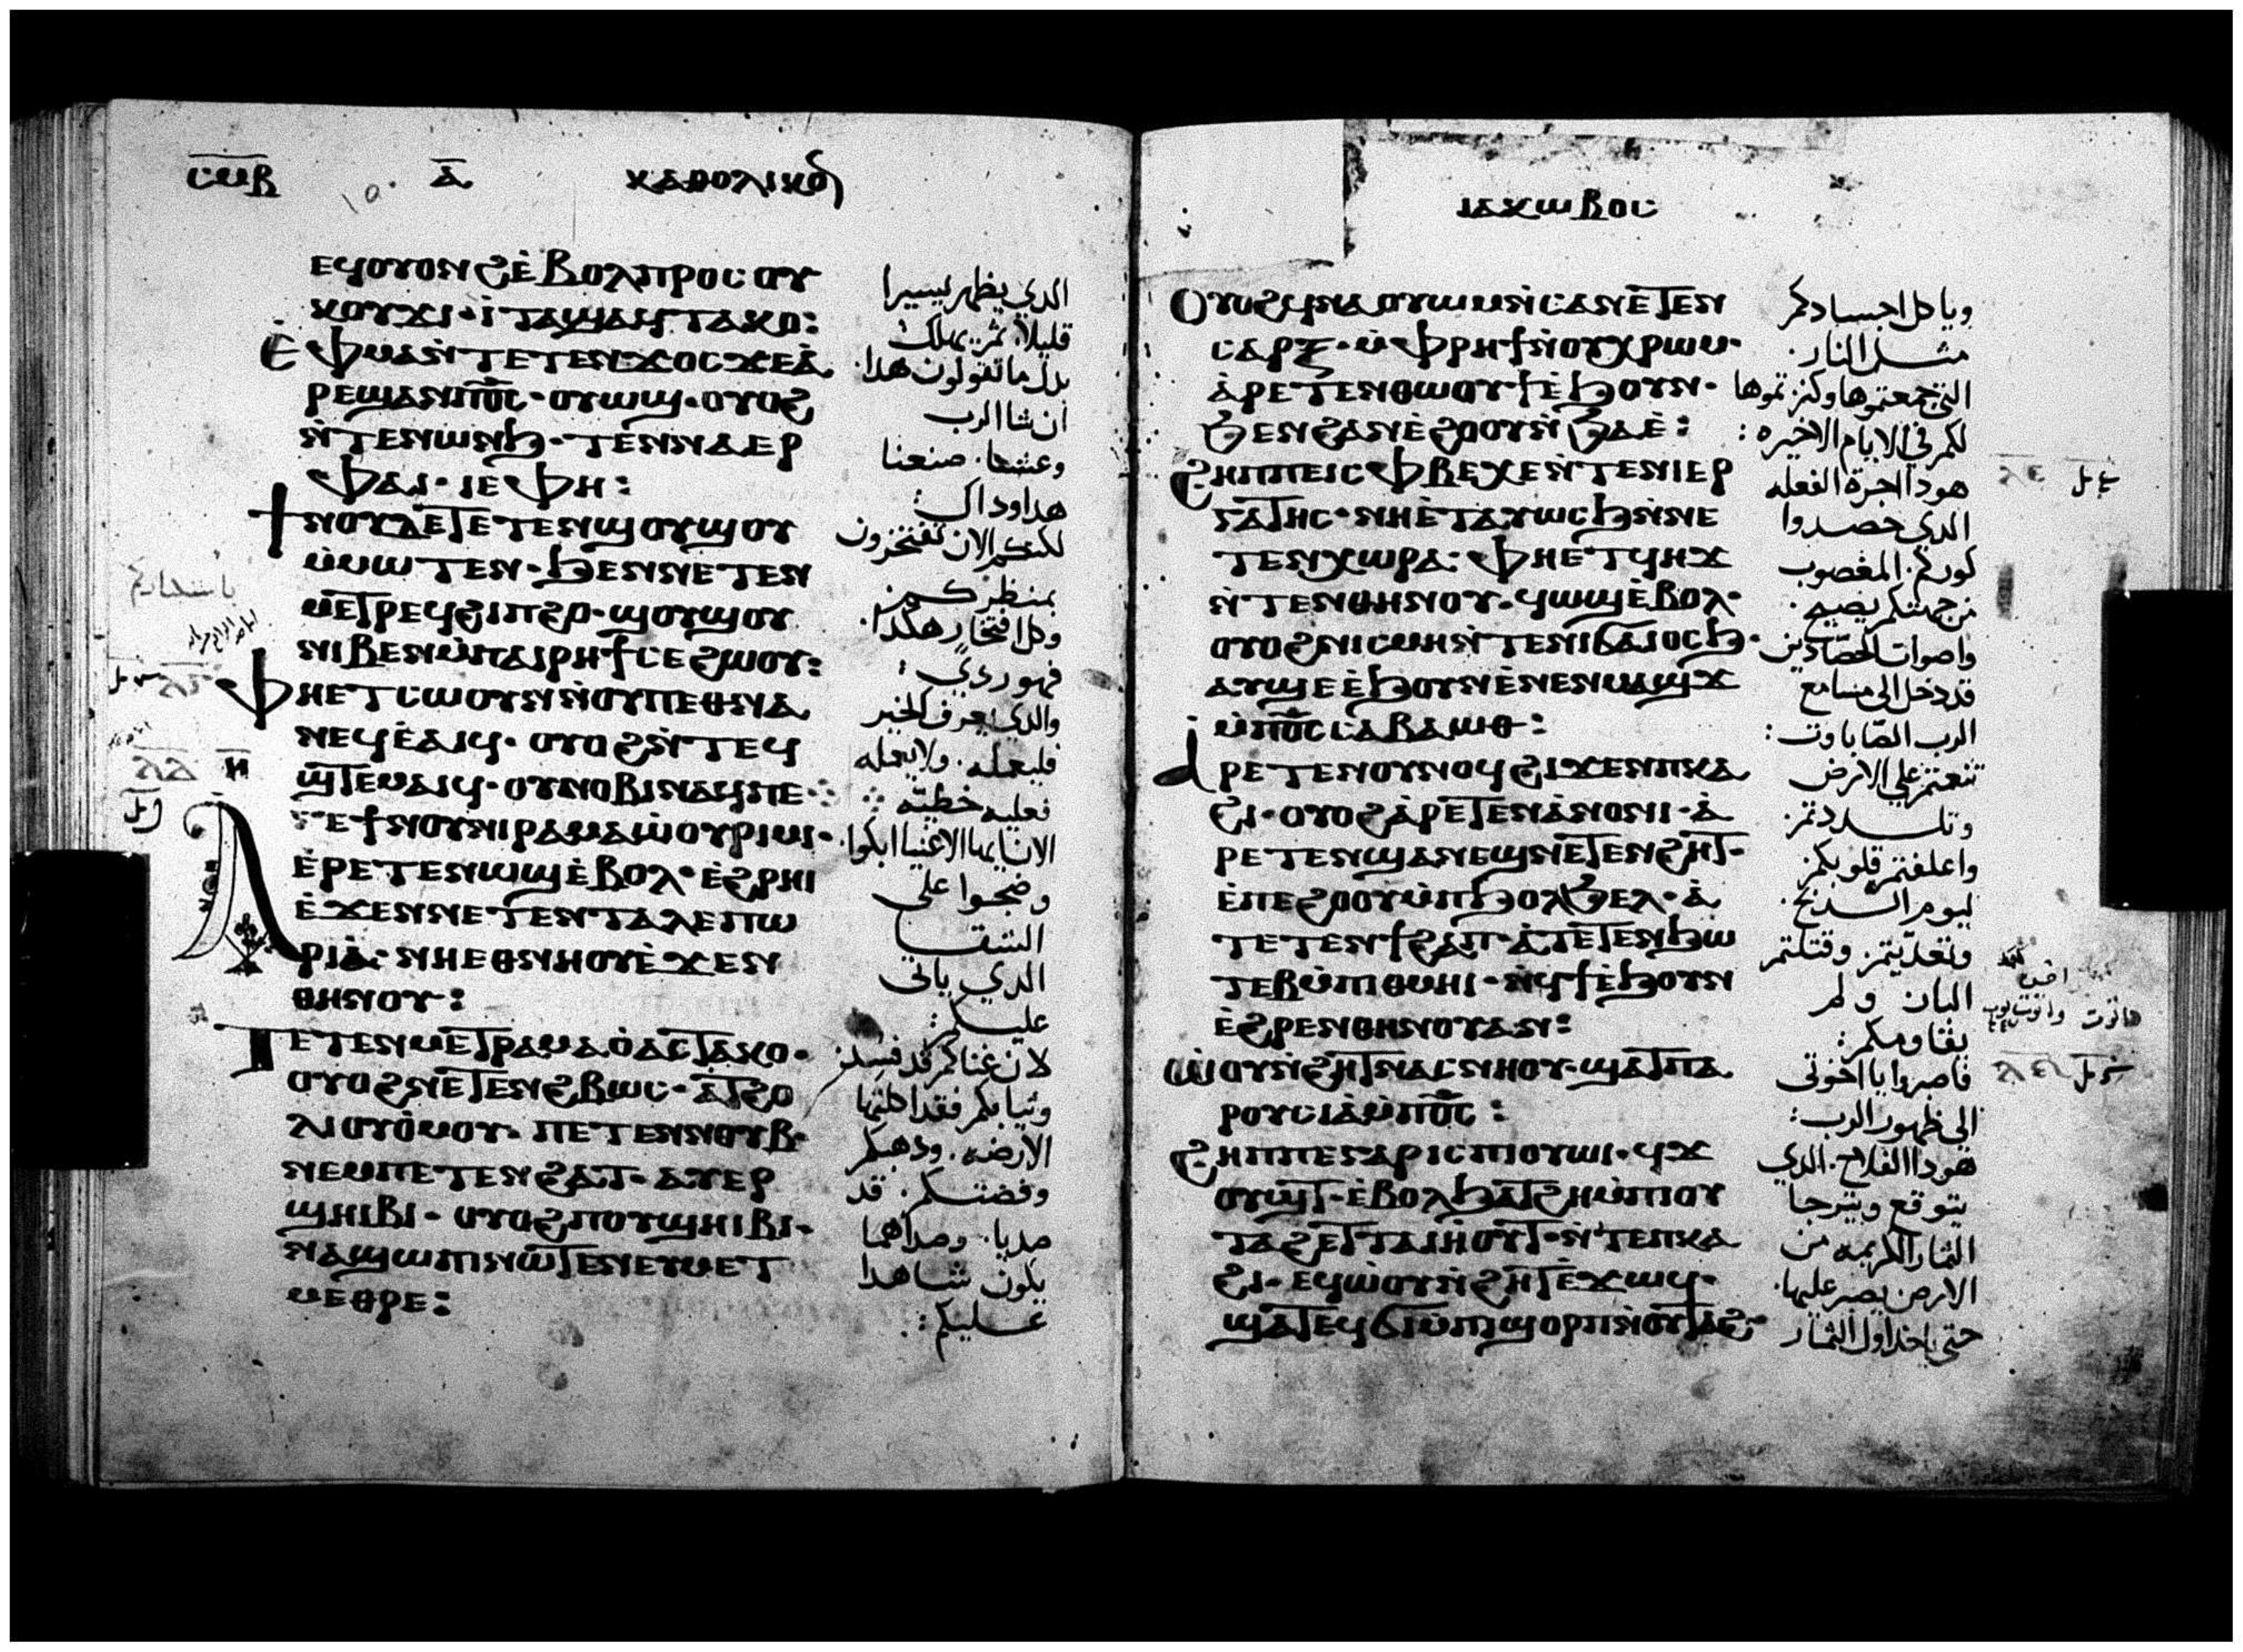 ⲥⲙⲃ ⲁ̅ ⲕⲁⲑⲟⲗⲓⲕⲟⲛ
ⲉϥⲟⲩⲟⲛϩ ⲉ̀ⲃⲟⲗ ⲡⲣⲟⲥ ⲟⲩ
ⲕⲟⲩϫⲓ· ⲓ̀ⲧⲁ ϣⲁϥⲧⲁⲕⲟ:
ⲉ̀ⲫⲙⲁ ⲛ̀ⲧⲉⲧⲉⲛϫⲟⲥ ϫⲉ ⲁ̀
ⲣⲉϣⲁⲛ ⲡⲟ̅ⲥ̅· ⲟⲩⲱϣ· ⲟⲩⲟϩ
ⲛ̀ⲧⲉⲛⲱⲛϧ· ⲧⲉⲛⲛⲁⲉⲣ
ⲫⲁⲓ· ⲓⲉ ⲫⲏ:
ϯⲛⲟⲩ ⲇⲉ ⲧⲉⲧⲉⲛϣⲟⲩϣⲟⲩ
ⲙ̀ⲙⲱⲧⲉⲛ· ϧⲉⲛ ⲛⲉⲧⲉⲛ
ⲙⲉⲧⲣⲉϥϩⲓⲡϩⲟ· ϣⲟⲩϣⲟⲩ
ⲛⲓⲃⲉⲛ ⲙ̀ⲡⲁⲓⲣⲏϯ ⲥⲉϩⲱⲟⲩ:
ⲫⲏⲉⲧⲥⲱⲟⲩⲛ ⲛ̀ⲟⲩⲡⲉⲑⲛⲁ
ⲛⲉϥ ⲉ̀ⲁⲓϥ· ⲟⲩⲟϩ ⲛ̀ⲧⲉϥ
ϣⲧⲉⲙⲁⲓϥ· ⲟⲩⲛⲟⲃⲓ ⲛⲁϥ ⲡⲉ
ⲁⲅⲉ ϯⲛⲟⲩ ⲛⲓⲣⲁⲙⲁⲱ̀ⲟⲩ ⲣⲓⲙⲓ·
ⲉ̀ⲣⲉⲧⲉⲛⲱϣ ⲉ̀ⲃⲟⲗ· ⲉ̀ϩⲣⲏⲓ
ⲉ̀ϫⲉⲛ ⲛⲉⲧⲉⲛⲧⲁⲗⲉⲡⲱ
ⲣⲓⲁ̀· ⲛⲏⲉⲑⲛⲏⲟⲩ ⲉ̀ϫⲉⲛ
ⲑⲏⲛⲟⲩ:
ⲧⲉⲧⲉⲛⲙⲉⲧⲣⲁⲙⲁⲟ̀ ⲁⲥⲧⲁⲕⲟ·
ⲟⲩⲟϩ ⲛⲉⲧⲉⲛϩⲃⲱⲥ· ⲁ̀ ⲧϩⲟ
ⲗⲓ ⲟⲩⲟ̀ⲙⲟⲩ· ⲡⲉⲧⲉⲛⲛⲟⲩⲃ
ⲛⲉⲙ ⲡⲉⲧⲉⲛϩⲁⲧ· ⲁⲩⲉⲣ
ϣⲏⲓⲃⲓ· ⲟⲩⲟϩ ⲡⲟⲩϣⲏⲓⲃⲓ·
ⲛⲁϣⲱⲡⲓ ⲛⲱⲧⲉⲛ ⲉⲩⲙⲉⲧ
ⲙⲉⲑⲣⲉ:
الدي يظهر يسيرا
قليلا ثم يهلك
بدل ما تقولون هدا
ان شا الرب
وعشنا. صنعنا
هدا وداك:
لكنكم الان تفتخرون
وكل افتخار هكدا
فهو ردي:
والدي يعرف الخير
فليعمله. ولا يعمله
فعليه خطيته
الان ايها الاغنيا ابكوا
وضجوا على
الشقا
الدي ياتى
عليكم:
لان غناكم قد فسد
وثيابكم فقد اكلتها
الارضه. ودهبكم
وفضتكم. قد
صديا. وصداهما
يكون شاهدا
عليكم:
ⲓⲁⲕⲱⲃⲟⲥ
ⲟⲩⲟϩ ϥⲛⲁⲟⲩⲱⲙ ⲛ̀ⲥⲁ ⲛⲉⲧⲉⲛ
ⲥⲁⲣⲝ· ⲙ̀ⲫⲣⲏϯ ⲛ̀ⲟⲩⲭⲣⲱⲙ·
ⲁ̀ⲣⲉⲧⲉⲛⲑⲱⲟⲩϯ ⲉ̀ϧⲟⲩⲛ·
ϧⲉⲛ ϩⲁⲛⲉ̀ϩⲟⲟⲩ ⲛ̀ϧⲁⲉ̀:
ϩⲏⲡⲡⲉ ⲓⲥ ⲫⲃⲉⲭⲉ ⲛ̀ⲧⲉ ⲛⲓⲉⲣ
ⲅⲁⲧⲏⲥ· ⲛⲏⲉ̀ⲧⲁⲩⲱⲥϧ ⲛ̀ⲛⲉ
ⲧⲉⲛⲭⲱⲣⲁ· ⲫⲏⲉⲧϥⲏϫ
ⲛ̀ⲧⲉⲛ ⲑⲏⲛⲟⲩ· ϥⲱϣ ⲉ̀ⲃⲟⲗ·
ⲟⲩⲟϩ ⲛⲓⲥⲙⲏ ⲛ̀ⲧⲉ ⲛⲓϭⲁⲓⲟⲥϧ·
ⲁⲩϣⲉ ⲉ̀ϧⲟⲩⲛ ⲉ̀ⲛⲉⲛⲙⲁϣϫ
ⲙ̀ⲡⲟ̅ⲥ̅ ⲥⲁⲃⲁⲱⲑ:
ⲁ̀ⲣⲉⲧⲉⲛⲟⲩⲛⲟϥ ϩⲓϫⲉⲛ ⲡⲕⲁ
ϩⲓ· ⲟⲩⲟϩ ⲁ̀ⲣⲉⲧⲉⲛⲁ̀ⲛⲟⲛⲓ· ⲁ̀
ⲣⲉⲧⲉⲛϣⲁⲛⲉϣ ⲛⲉⲧⲉⲛϩⲏⲧ·
ⲉ̀ⲡⲉϩⲟⲟⲩ ⲙ̀ⲡϧⲟⲗϧⲉⲗ· ⲁ̀
ⲧⲉⲧⲉⲛϯϩⲁⲡ· ⲁ̀ⲧⲉⲧⲉⲛϧⲱ
ⲧⲉⲃ ⲙ̀ⲡⲓⲑⲙⲏⲓ· ⲛ̀ϥϯ ⲉ̀ϧⲟⲩⲛ
ⲉ̀ϩⲣⲉⲛ ⲑⲏⲛⲟⲩ ⲁⲛ:
ⲱ̀ⲟⲩ ⲛ̀ϩⲏⲧ ⲛⲁⲥⲛⲏⲟⲩ· ϣⲁ ⲧⲡⲁ
ⲣⲟⲩⲥⲓⲁ̀ ⲙ̀ⲡⲟ̅ⲥ̅:
ϩⲏⲡⲡⲉ ⲅⲁⲣ ⲓⲥ ⲡⲓⲟⲩⲱⲓ· ϥϫ
ⲟⲩϣⲧ· ⲉ̀ⲃⲟⲗ ϧⲁⲧϩⲏ ⲙ̀ⲡⲓⲟⲩ
ⲧⲁϩ ⲉⲧⲧⲁⲓⲏⲟⲩⲧ· ⲛ̀ⲧⲉ ⲡⲕⲁ
ϩⲓ· ⲉϥⲱ̀ⲟⲩ ⲛ̀ϩⲏⲧ ⲉ̀ϫⲱϥ·
ϣⲁⲧⲉϥϭⲓ ⲙ̀ⲡⲓϣⲟⲣⲡ ⲛ̀ⲟⲩⲧⲁϩ·
وياكل اجسادكم
مثل النار.
التي جمعتموها وكنزتموها
لكم في الايام الاخيره:
هودا اجرة الفعله
الدي حصدوا
كوركم. المغصوب
من جهتكم يصيح.
واصوات الحصادين
قد دخل الى مسامع
الرب الصاباوت:
تنعمتم على الارض
وتلددتم.
واعلفتم قلوبكم
ليوم الدبح.
وتعديتم وقتلتم
البار ولم
يقاومكم:
فاصبروا يا اخوتى
الى ظهور الرب:
هودا الفلاح. الدي
يتوقع ويترجا
الثمار الكريمه من
الارض يصبر عليها.
حتى ياخد اول الثمار